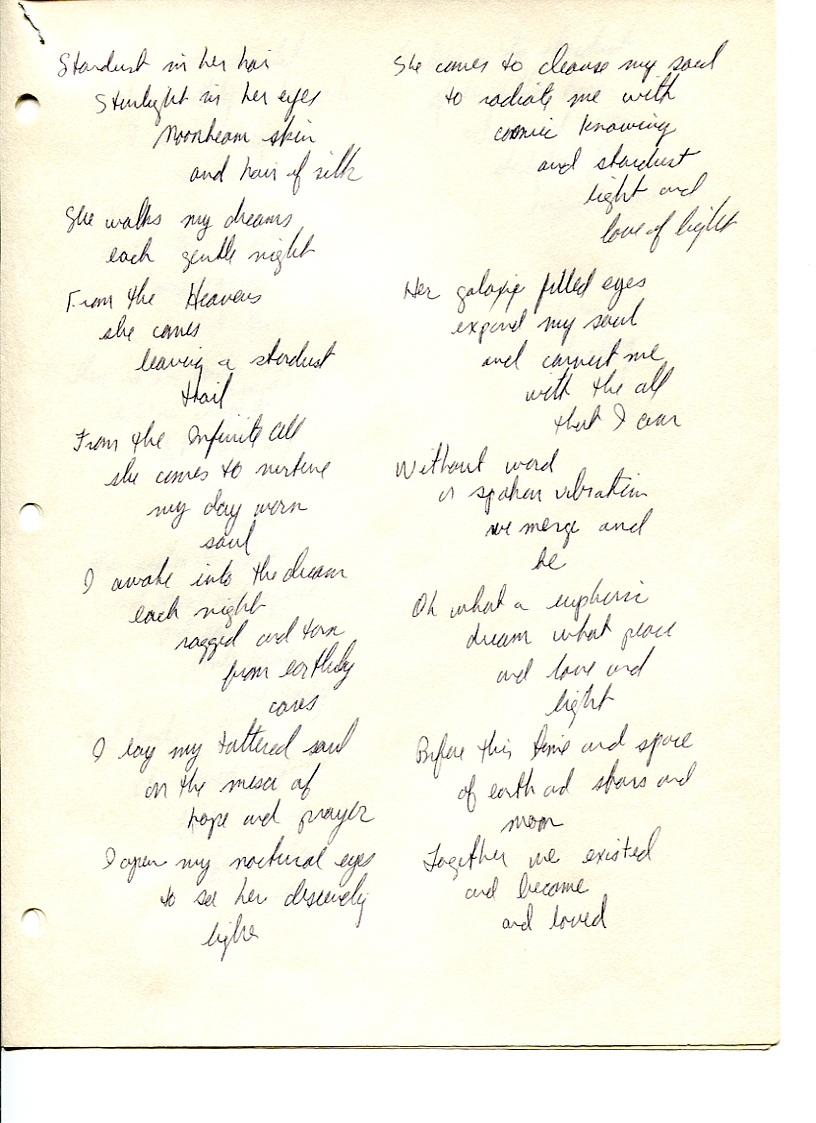 Stardust in her hair
Starlight in her eyes
Moonbeam skin
and hair of silk
She walks my dreams
each gentle night
From the Heavens
she comes
leaving a stardust
trail
From the Infinite All
she comes to nurture
my day worn
soul
I awake into the dream
each night
ragged and torn
from earthly
cares
I lay my tattered soul
on the mesa of
hope and prayer
I open my noctural eyes
to see her
light
She comes to cleanse my soul
to radiate me with
cosmic knowing
and stardust
light and
love of light
Her galaxie filled eyes
expand my soul
and connect me
with the all
that I am
Without word
or spoken vibration
we merge and
be
Oh what a euphoric
dream what peace
and love and
light
Before this time and space
of earth ad stars and
moon
Together we existed
and became
and loved